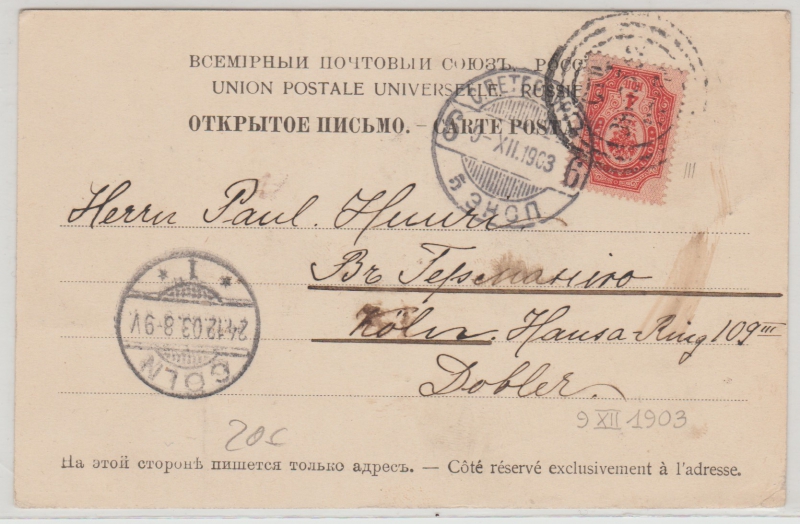 ВСЕМІРНЫЙ ПОЧТОВЫЙ СОЮЗЪ. РОСС
UNION POSTALE UNIVERSELLE. RUSSIE
ОТКРЫТОЕ ПИСЬМО. - CARTE POST
4
КОП
6 6
XII.1903
5 ЭКСП
Herrn Paul
Въ Германію
Köln. Hansa-Ring 109 III
Dobler.
* 1 *
24.12.03.8-9V.
CÖLN
III
9 XII 1903
20c
На этой сторонѣ пишется только адресъ. — Côté réservé exclusivement à l'adresse.